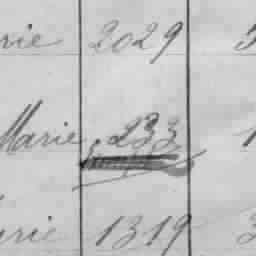 rie 2029 3
Marie 233 1
arie 1319 3